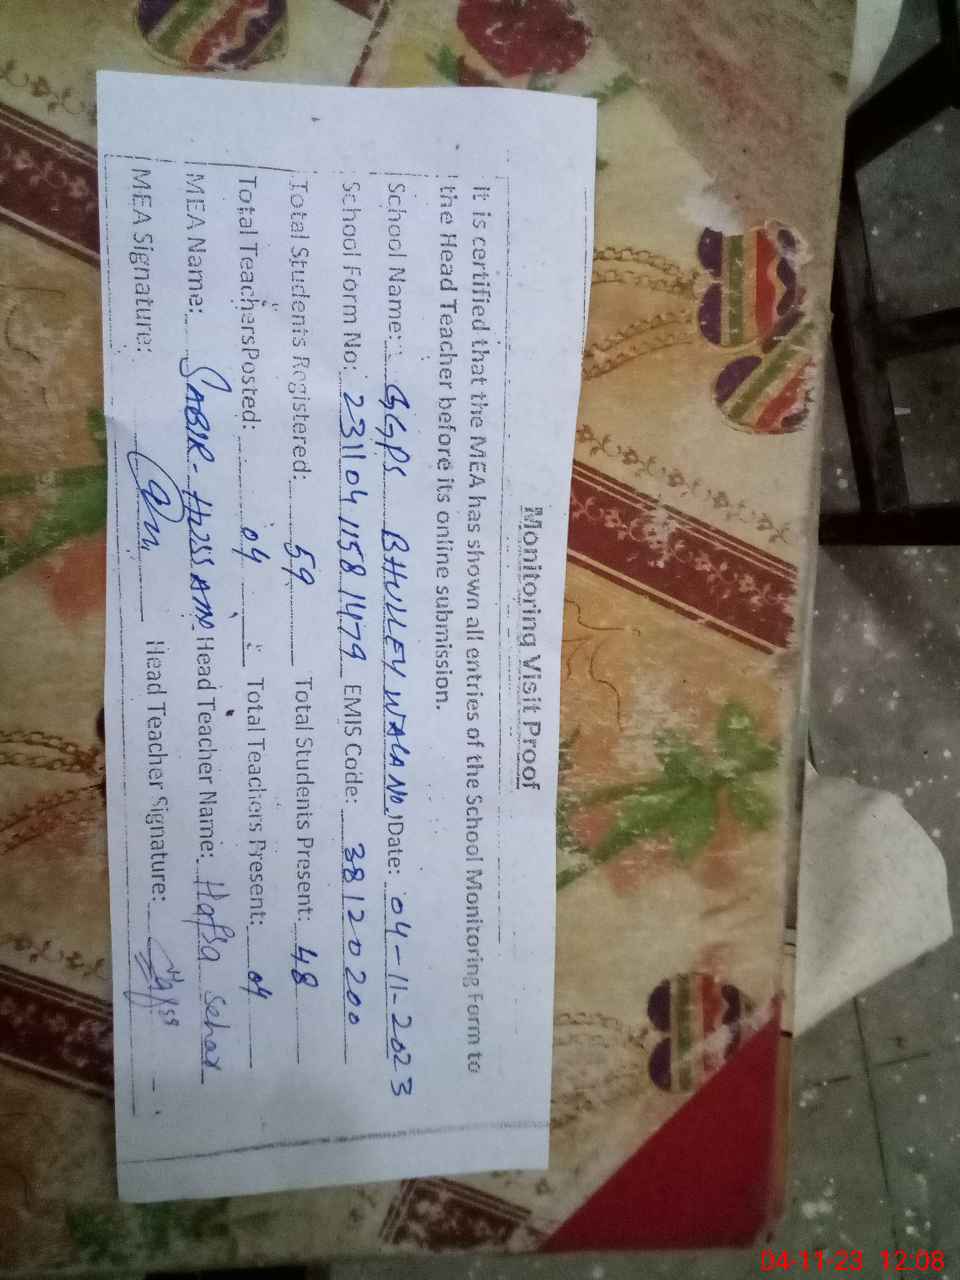 Monitoring Visit Proof
It is certified that the MEA has shown all entries of the School Monitoring Form to
the Head Teacher before its online submission.
School Name: GGPS BHULLEY WALA No.1 Date: 04-11-2023
School Form No: 23110411581479 EMIS Code: 38120200
Total Students Registered: 59 Total Students Present: 48
Total Teachers Posted: 04 Total Teachers Present: 04
MEA Name: SABIR-HUSSAIN Head Teacher Name: Hafsa Sehar
MEA Signature: Head Teacher Signature: Hafsa
04-11-23 12:08